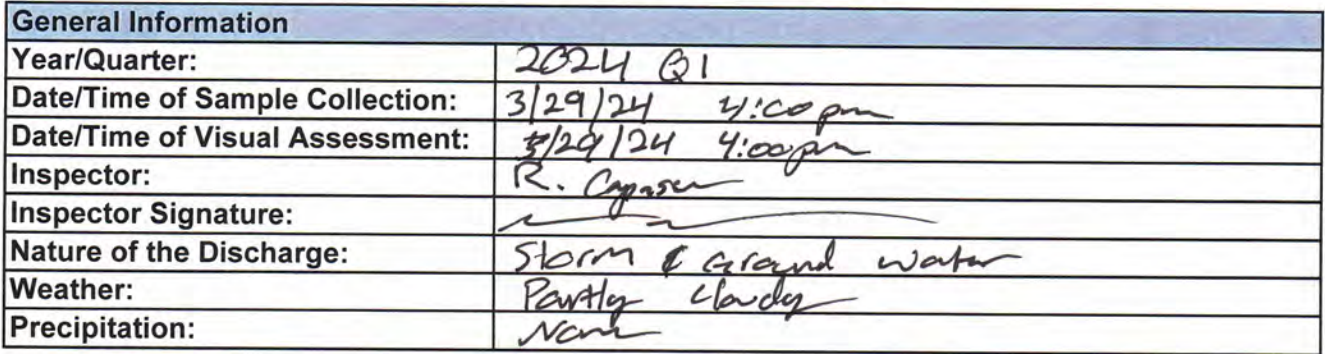 General Information
Year/Quarter: 2024 Q1
Date/Time of Sample Collection: 3/29/24 4:00 pm
Date/Time of Visual Assessment: 3/29/24 4:00 pm
Inspector: R.
Inspector Signature:
Nature of the Discharge: Storm & Ground water
Weather: Partly Cloudy
Precipitation: None